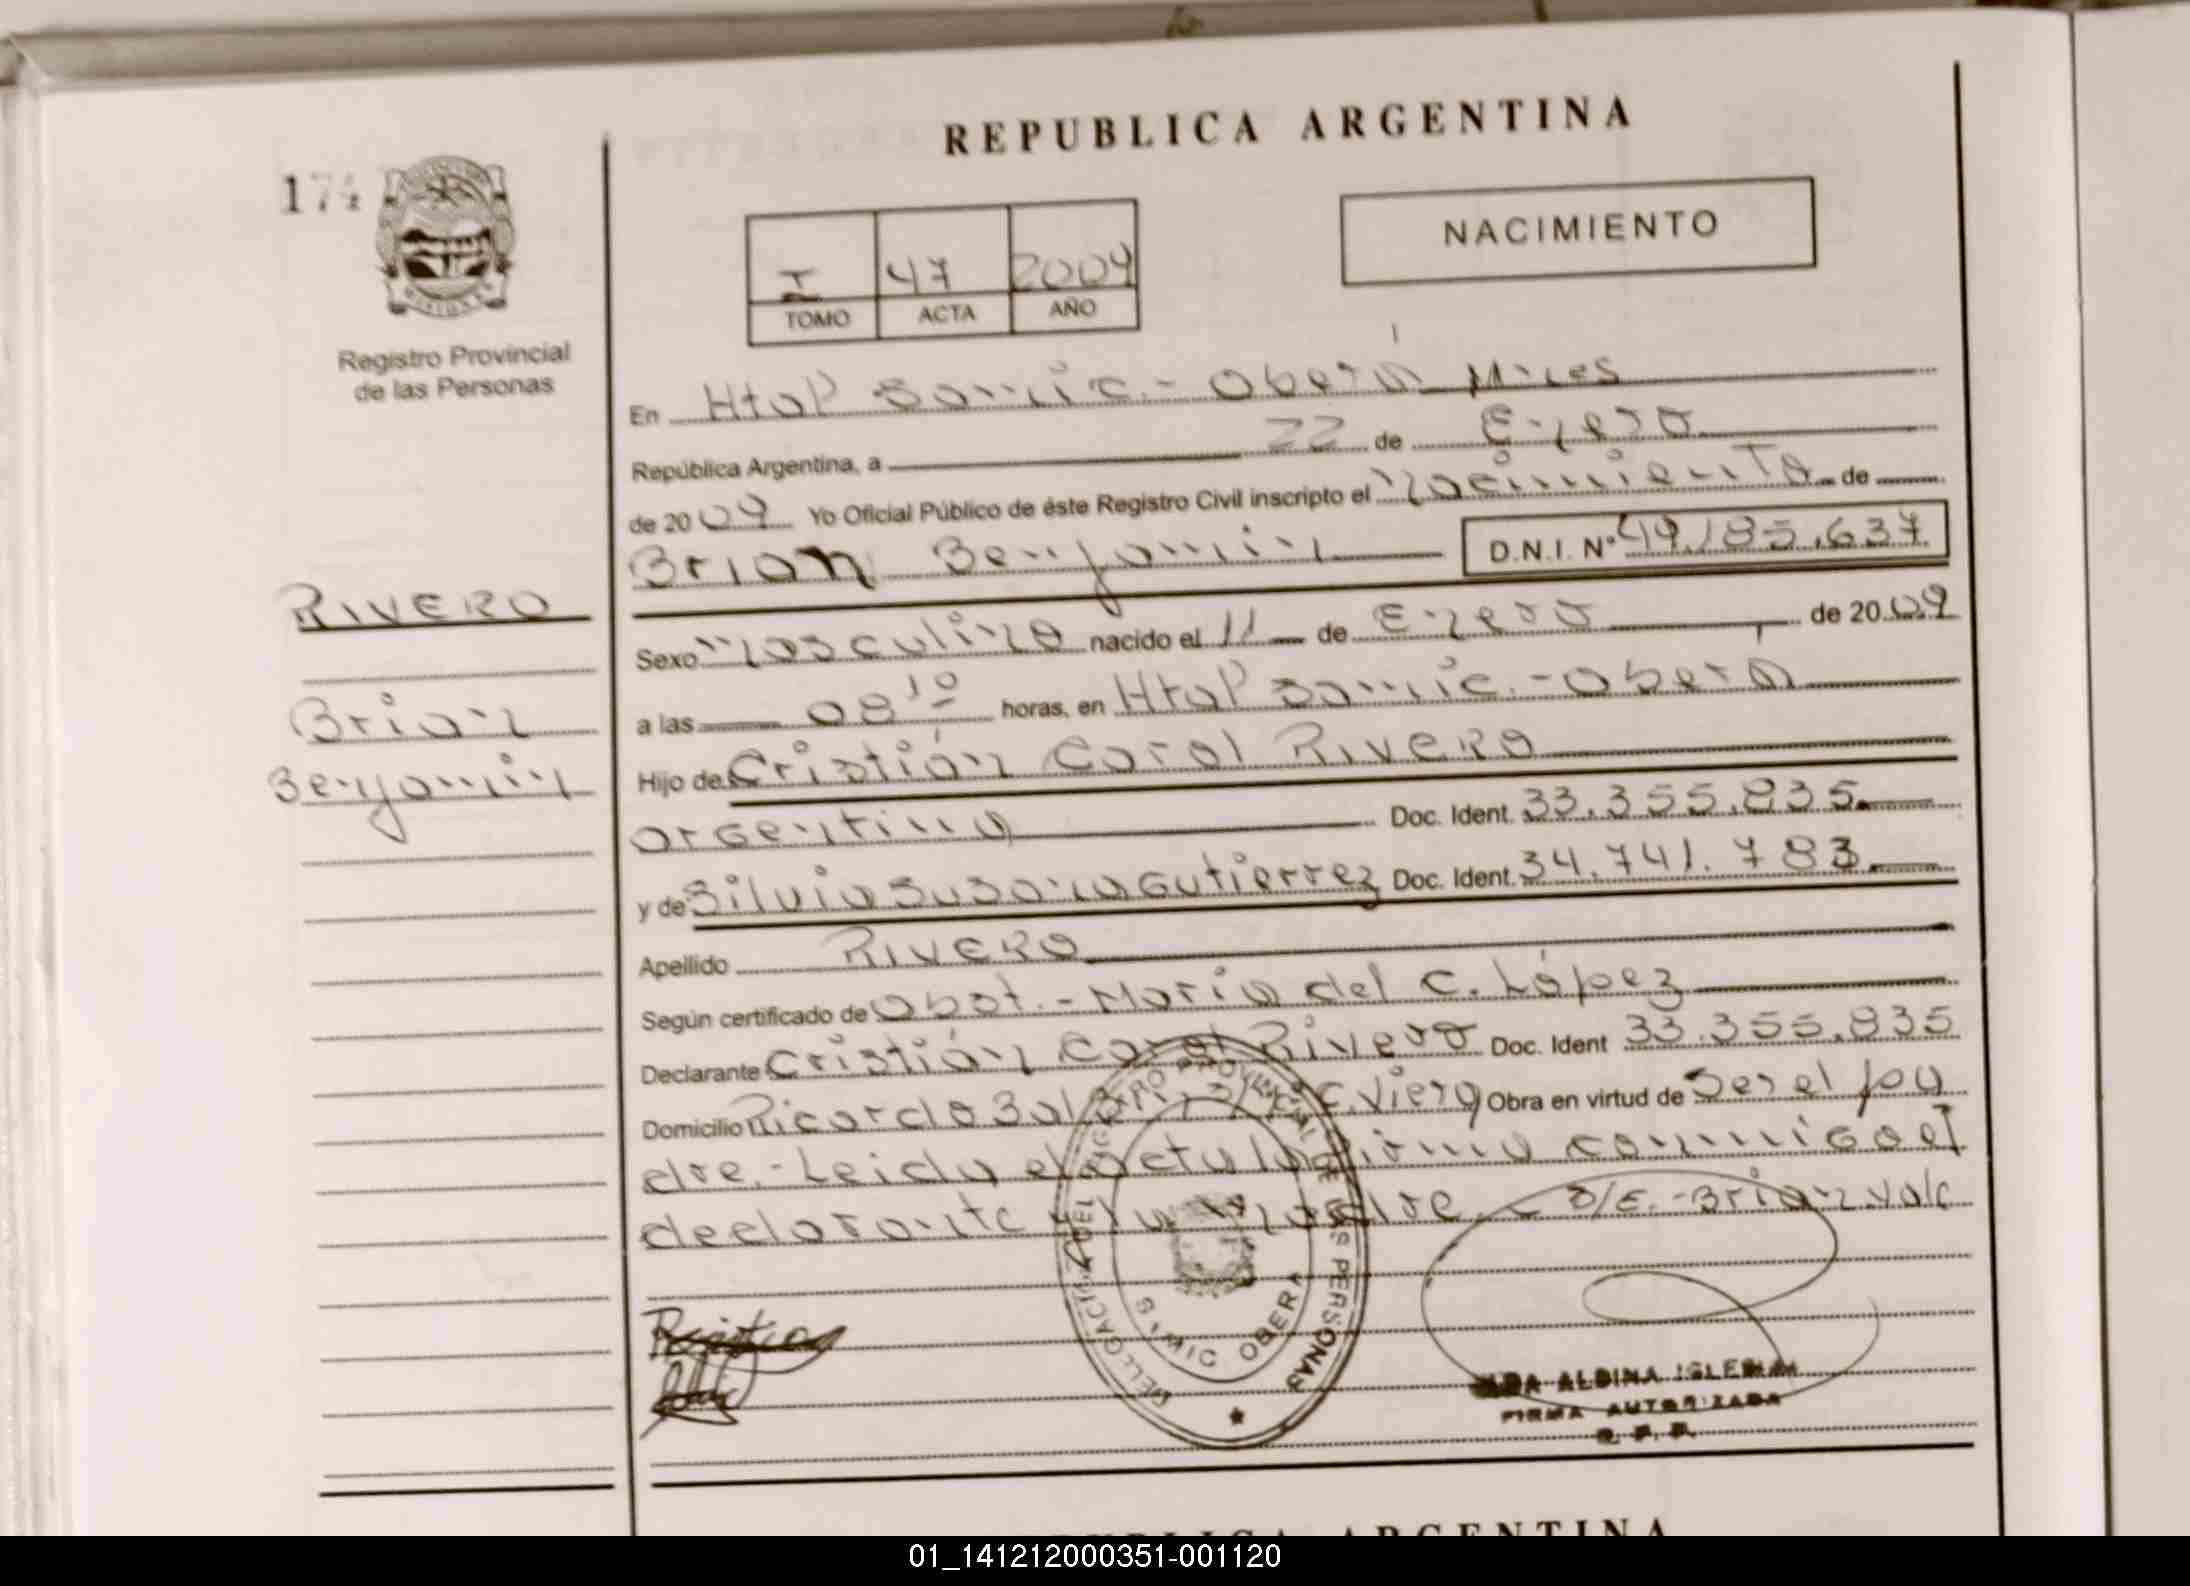 REPUBLICA ARGENTINA
174
NACIMIENTO
I 47 2009
TOMO ACTA AÑO
Registro Provincial
de las Personas
En Htal Samic.- Oberá Mnes
República Argentina, a 22 de Enero
de 2009 Yo Oficial Público de éste Registro Civil inscripto el Nacimiento de
Brian Benjamin D.N.I. Nº 49.185.637
RIVERO
Brian
Benjamin
Sexo Masculino nacido el 11 de Enero de 2009
a las 08 10 horas, en Htal Samic.- Oberá
Hijo de Cristián Carol RIVERO
argentino Doc. Ident. 33.355.835
y de Silvia Susana Gutierrez Doc. Ident. 34.741.783
Apellido RIVERO
Según certificado de Obst.- Maria del C. López
Declarante Cristián Carol Rivero Doc. Ident 33.355.835
Domicilio Ricardo C. Viera Obra en virtud de ser el pa
dre.- Leida el acta la firma conmigo el
declarante y la madre.- S/E.- Brian. vale
DELEGACION DEL REGISTRO PROVINCIAL DE LAS PERSONAS
SAMIC OBERA
ALBINA IGLESIAS
FIRMA AUTORIZADA
R. P. P.
REPUBLICA ARGENTINA
01_141212000351-001120